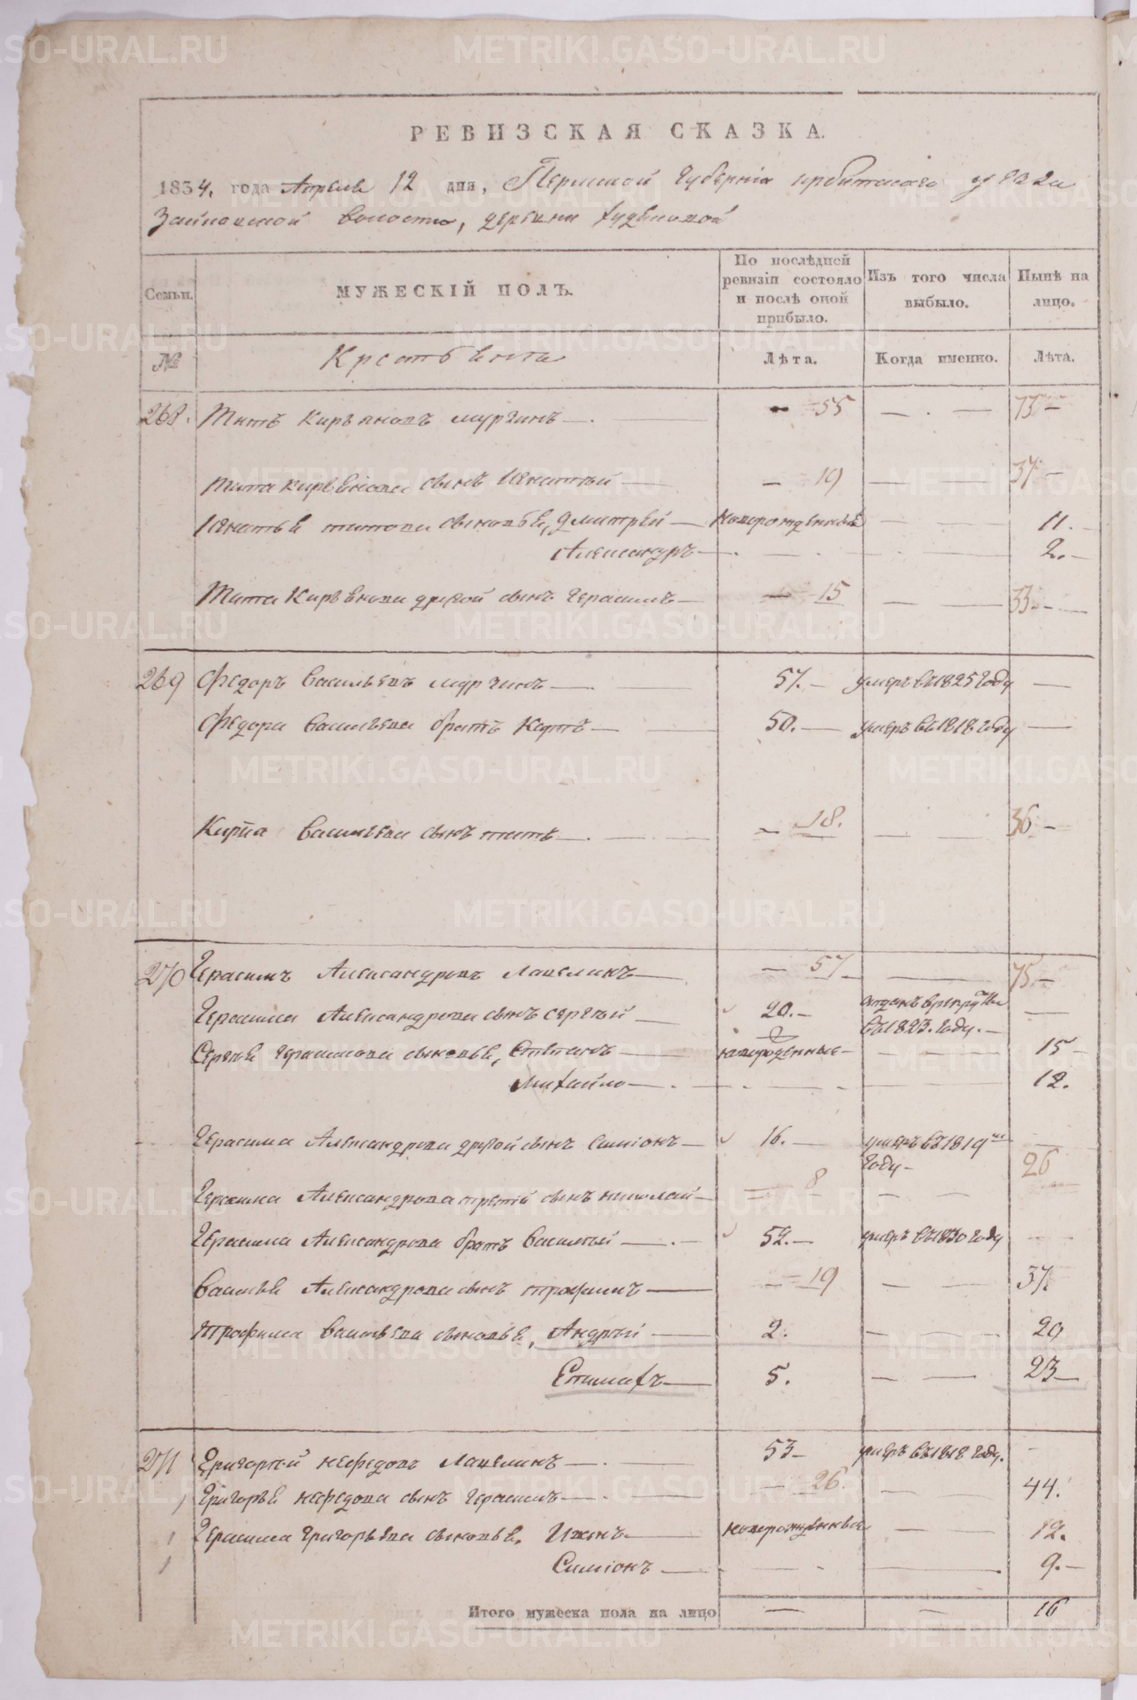 РЕВИЗСКАЯ СКАЗКА.
1834. года Апреля 12 дня, Пермской Губернiи Ирбитскаго уѣзда
Зайковской волости, деревни
Семьи. МУЖЕСКIЙ ПОЛЪ. По послѣдней ревизiи состояло и послѣ оной прибыло. Изъ того числа выбыло. Нынѣ на лицо.
№ Крестьяне Лѣта. Когда именно. Лѣта.
268. Титъ Кирьяновъ Мурзинъ 55 73
Тита Кирьянова сынъ Игнатiй 19 37
Игнатья Титова сыновья, Дмитрей новорожденные 11.
Александръ 2.
Тита Кирьянова другой сынъ Герасимъ 15 33
269 Федоръ Васильевъ Мурзинъ 57. умеръ въ 1825 году
Федора Васильева братъ 50. умеръ въ 1818 году
Васильева сынъ Титъ 18. 36
270 Герасимъ Александровъ Лапелинъ 57 75
Герасима Александрова сынъ Сергѣй 20. отданъ в рекруты въ 1823. году.
Сергѣя Герасимова сыновья, Степанъ новорожденные 15
Михайло 12.
Герасима Александрова другой сынъ Симiонъ 16. умеръ въ 1819м году
Герасима Александрова третiй сынъ Николай 8 26
Герасима Александрова братъ Василiй 52. умеръ въ 1830 году
Василья Александрова сынъ Трофимъ 19 37.
Трофима Васильева сыновья, Андрѣй 2. 20
Епимахъ 5. 23
271 Григорiй Нефедовъ Лапелинъ 53 умеръ въ 1818 году.
1 Григорья Нефедова сынъ Герасимъ 26. 44.
1 Герасима Григорьева сыновья, новорожденные 12.
1 Симiонъ 9.
Итого мужеска пола на лицо 16
METRIKI.GASO-URAL.RU